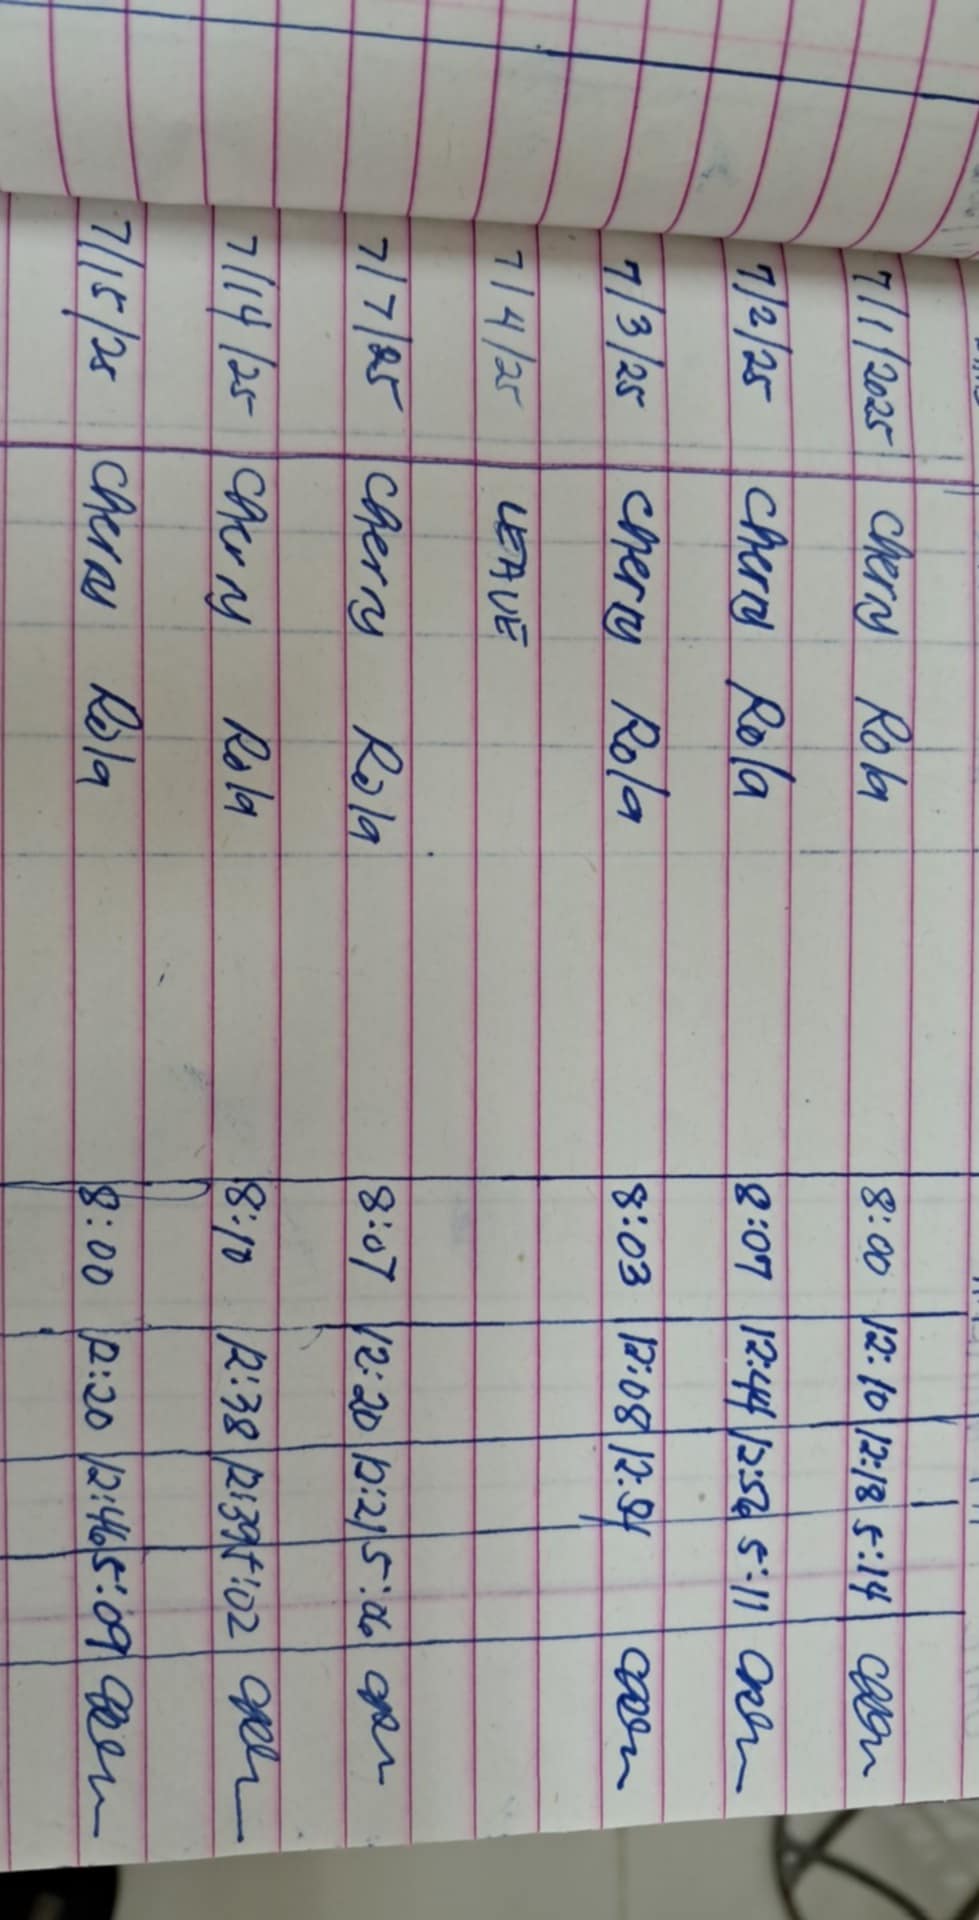 7/1/2025 Cherry Rola 8:00 12:10 12:18 5:14
7/2/25 Cherry Rola 8:07 12:44 12:56 5:11
7/3/25 Cherry Rola 8:03 12:08 12:51
7/4/25 LEAVE
7/7/25 Cherry Rola 8:07 12:20 12:21 5:06
7/14/25 Cherry Rola 8:10 12:38 12:39 5:02
7/15/25 Cherry Rola 8:00 12:20 12:46 5:09